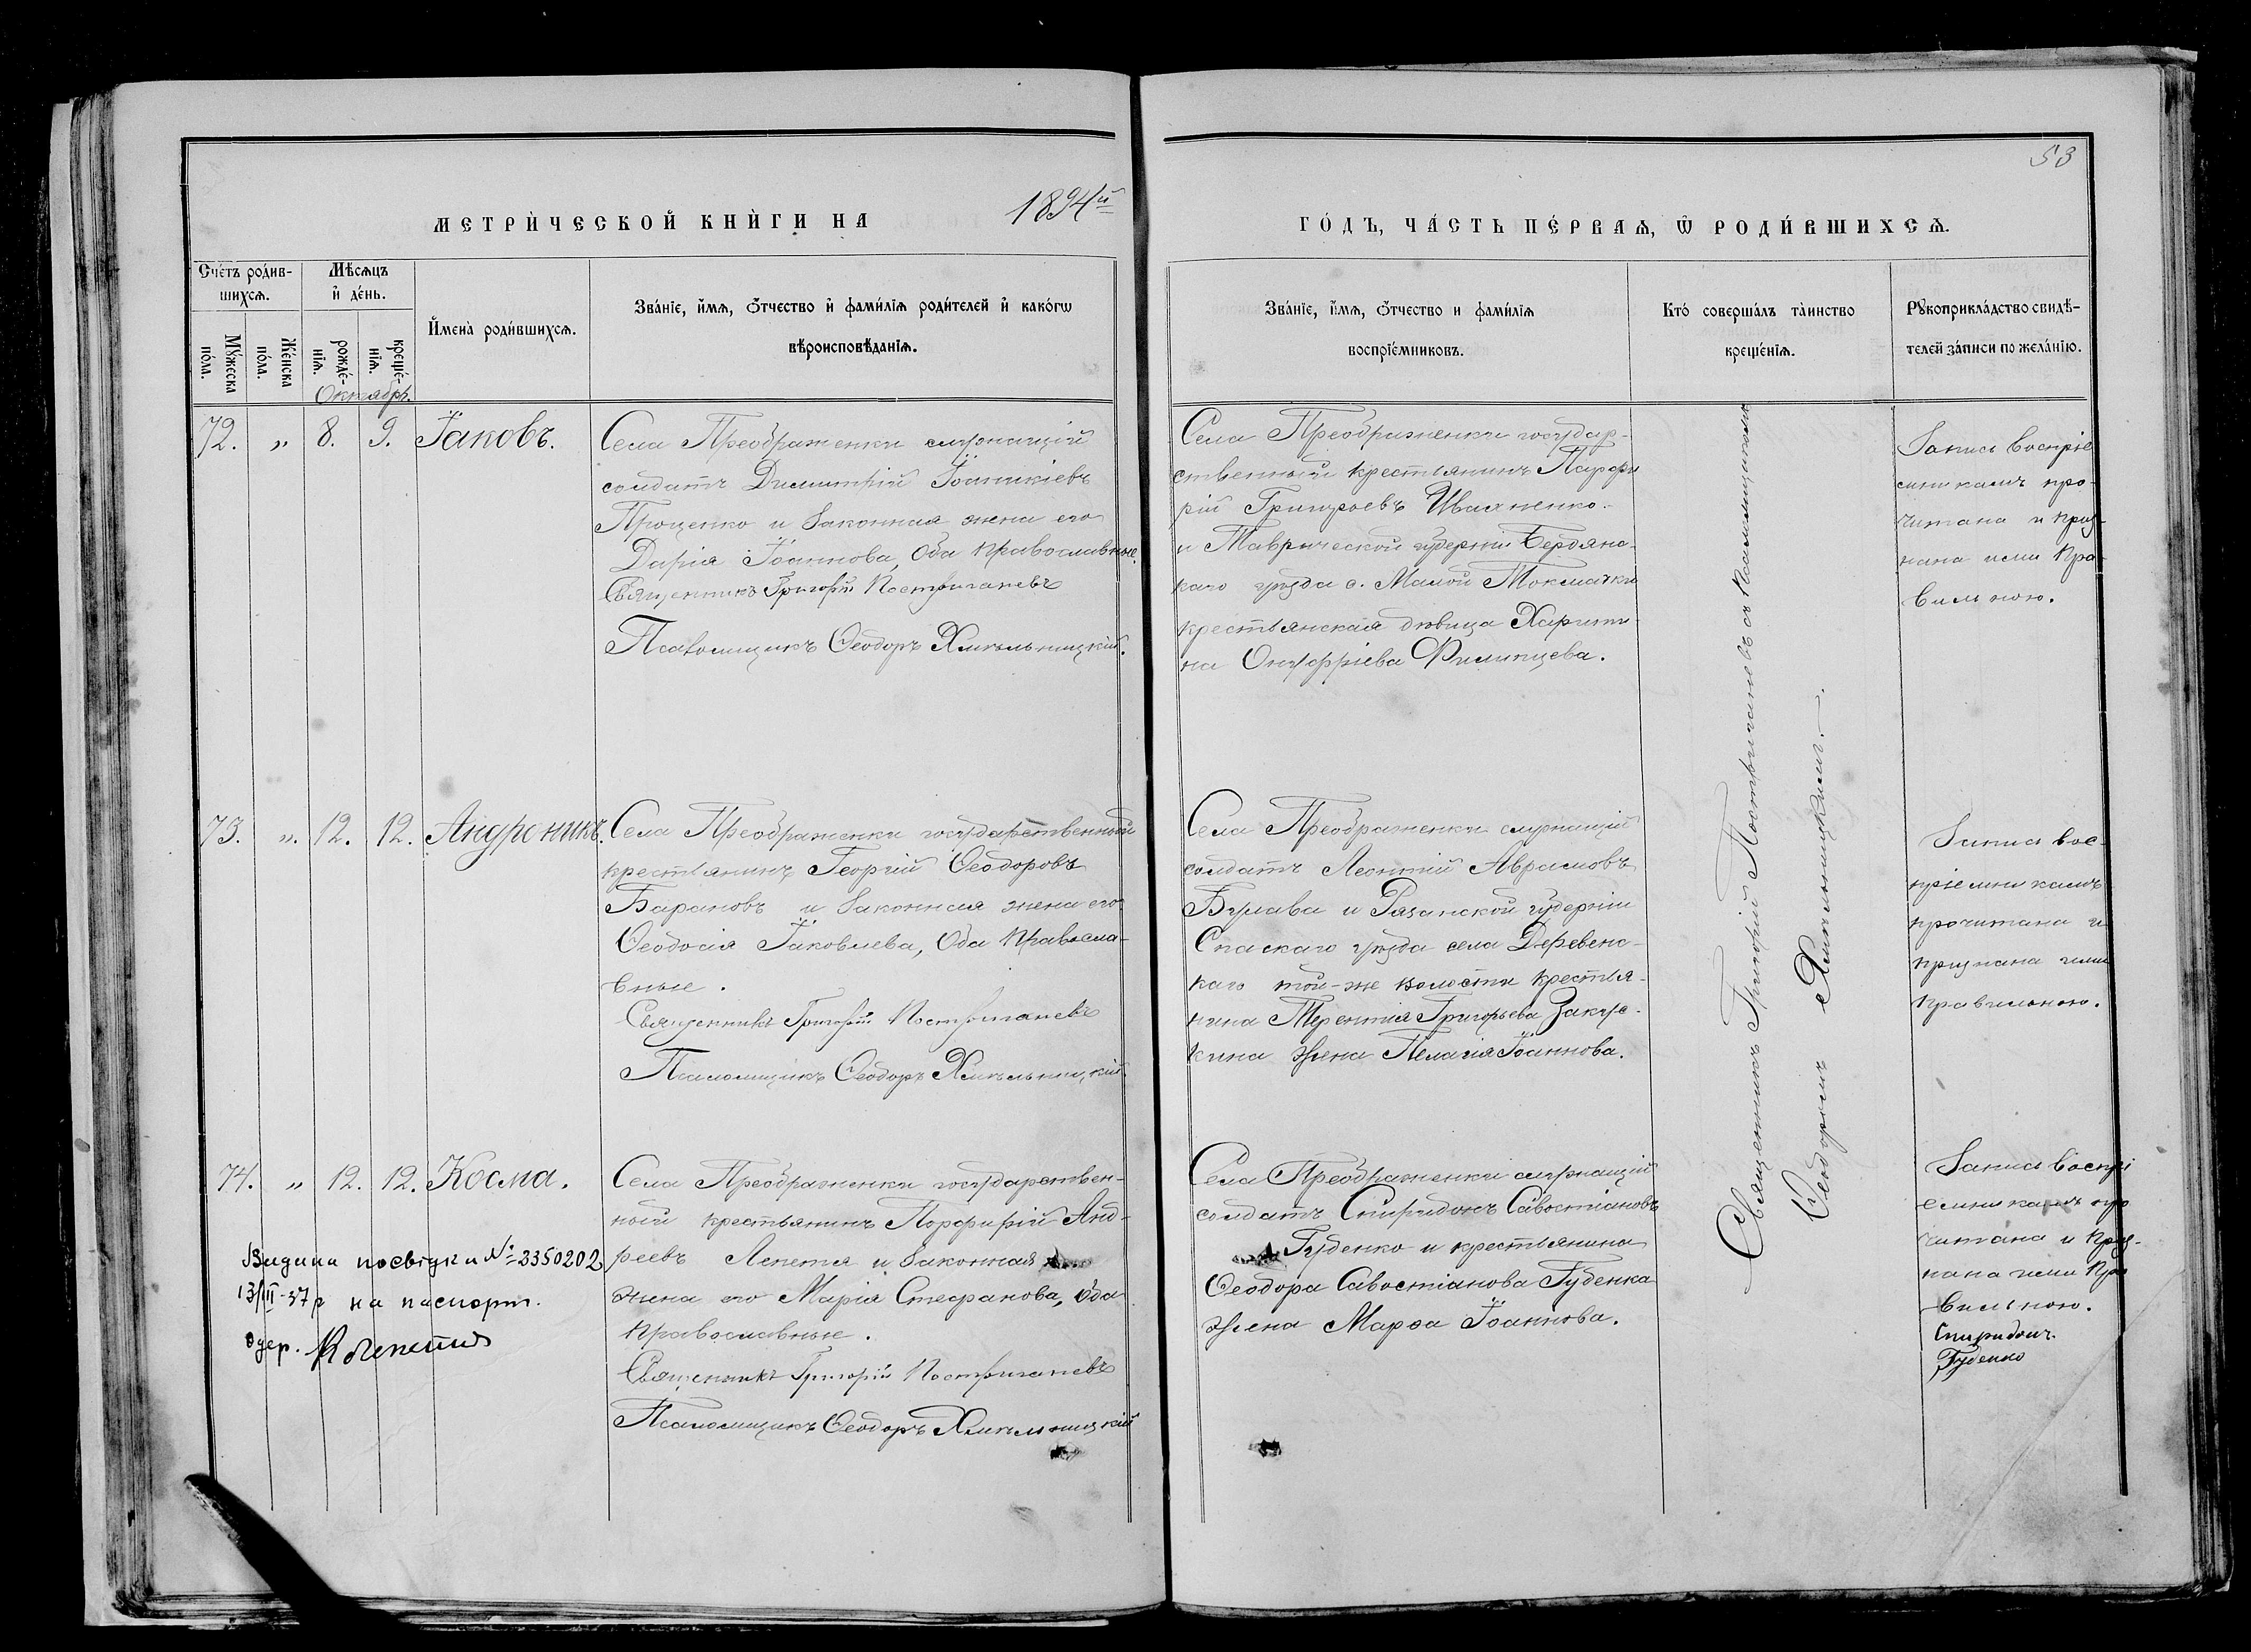 53
МЕТРИ́ЧЕСКОЙ КНИ́ГИ НА 1894й ГО́ДЪ, ЧА́СТЬ ПЕ́РВАѦ, Ѽ РОДИ́ВШИХСѦ.
Сче́тъ роди́в-
шихсѧ.
Мꙋ́жеска
по́ла.
Же́нска
по́ла.
Мѣ́сѧцъ
и҆ де́нь.
рожде́-
нїѧ.
креще́-
нїѧ.
Октябрь.
И҆мена̀ роди́вшихсѧ.
Зва́нїе, и҆́мѧ, ѻ҆́тчество и҆ фами́лїѧ роди́телей и҆ како́гѡ
вѣроисповѣ́данїѧ.
Зва́нїе, и҆́мѧ, ѻ҆́тчество и фами́лїѧ
воспрїе́мниковъ.
Кто́ соверша́лъ та̀инство
креще́нїѧ.
Рꙋкоприкла́дство свидѣ́-
телей за́писи по жела́нїю.
72. „ 8. 9. Іаковъ.
Села Преображенки служащій
солдатъ Димитрій Іоанникіевъ
Проценко и законная жена его
Дарія Іоаннова, оба православные.
Священникъ Григорій Постригачевъ
Псаломщикъ Ѳеодоръ Хмѣльницкій.
Села Преображенки государ-
ственный крестьянинъ Парфи
рій Григорьевъ Иваненко
и Таврической губерніи Бердянс-
каго уѣзда с. Малой Токмачки
крестьянская дѣвица Харити-
на Онуфріева Филипцева.
Запись воспріе
мникамъ про-
читана и приз-
нана ими пра-
вильною.
73. „. 12. 12. Андроникъ.
Села Преображенки государственный
крестьянинъ Георгій Ѳеодоровъ
Барановъ и законная жена его
Ѳеодосія Іаковлева, оба правосла-
вные.
Священникъ Григорій Постригачевъ
Псаломщикъ Ѳеодоръ Хмѣльницкій
Села Преображенки служащій
солдатъ Леонтій Аврамовъ
Булава и Рязанской губерніи
Спаскаго уѣзда села Деревенс-
каго той-же волости крестья-
нина Терентія Григорьева Закус-
кина жена Пелагія Іоаннова.
Запись вос-
пріемникамъ
прочитана и
признана ими
правильною.
74. „ 12. 12. Косма.
Села Преображенки государствен-
ный крестьянинъ Порфирій Анд-
реевъ Лепетя и законная
жена его Марія Стефанова, оба
православные.
Священникъ Григорій Постригачевъ
Псаломщикъ Ѳеодоръ Хмѣльницкій
Видана посвідки №-3350202
13/III-37 р на паспорт.
одер.
Села Преображенки служащій
солдатъ Спиридонъ Савостіановъ
Губенко и крестьянина
Ѳеодора Савостіанова Губенка
жена Марѳа Іоаннова.
Запись воспрі
емникамъ про
читана и приз-
нана ими пра
вильною.
Спиридонъ
Губенко
Священникъ Григорій Постригачевъ съ псаломщикомъ
Ѳеодоромъ Хмѣльницкимъ.